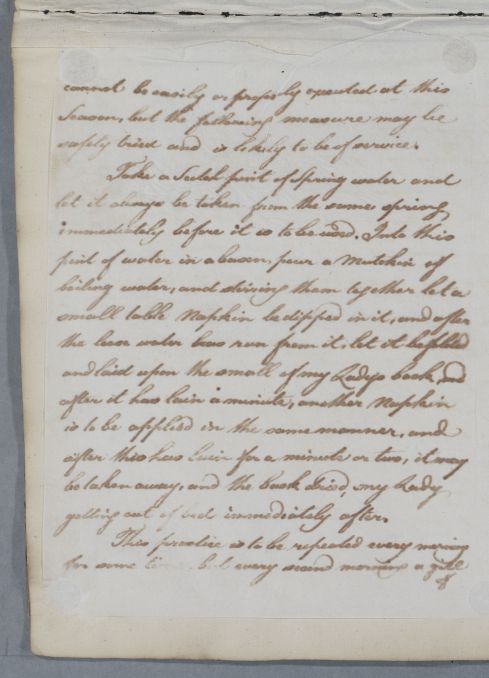 cannot be easily or properly executed at this
Season, but the following measure may be
safely tried and is likely to be of service.
Take a Scotch pint of Spring water and
let it always be taken from the same spring
immediately before it is to be used. Into this
pint of water in a bason, pour a Mutchkin of
boiling water, and stirring them together let a
small table Napkin be dipped in it, and after
the loose water has run from it, let it be folded
and laid upon the small of my Ladys back, and
after it has lain a minute, another Napkin
is to be applied in the same manner, and
after this has lain for a minute or two, it may
be taken away, and the back dried, my Lady
getting out of bed immediately after.
This practice is to be repeated every morning
for some time, but every second morning a gill
of